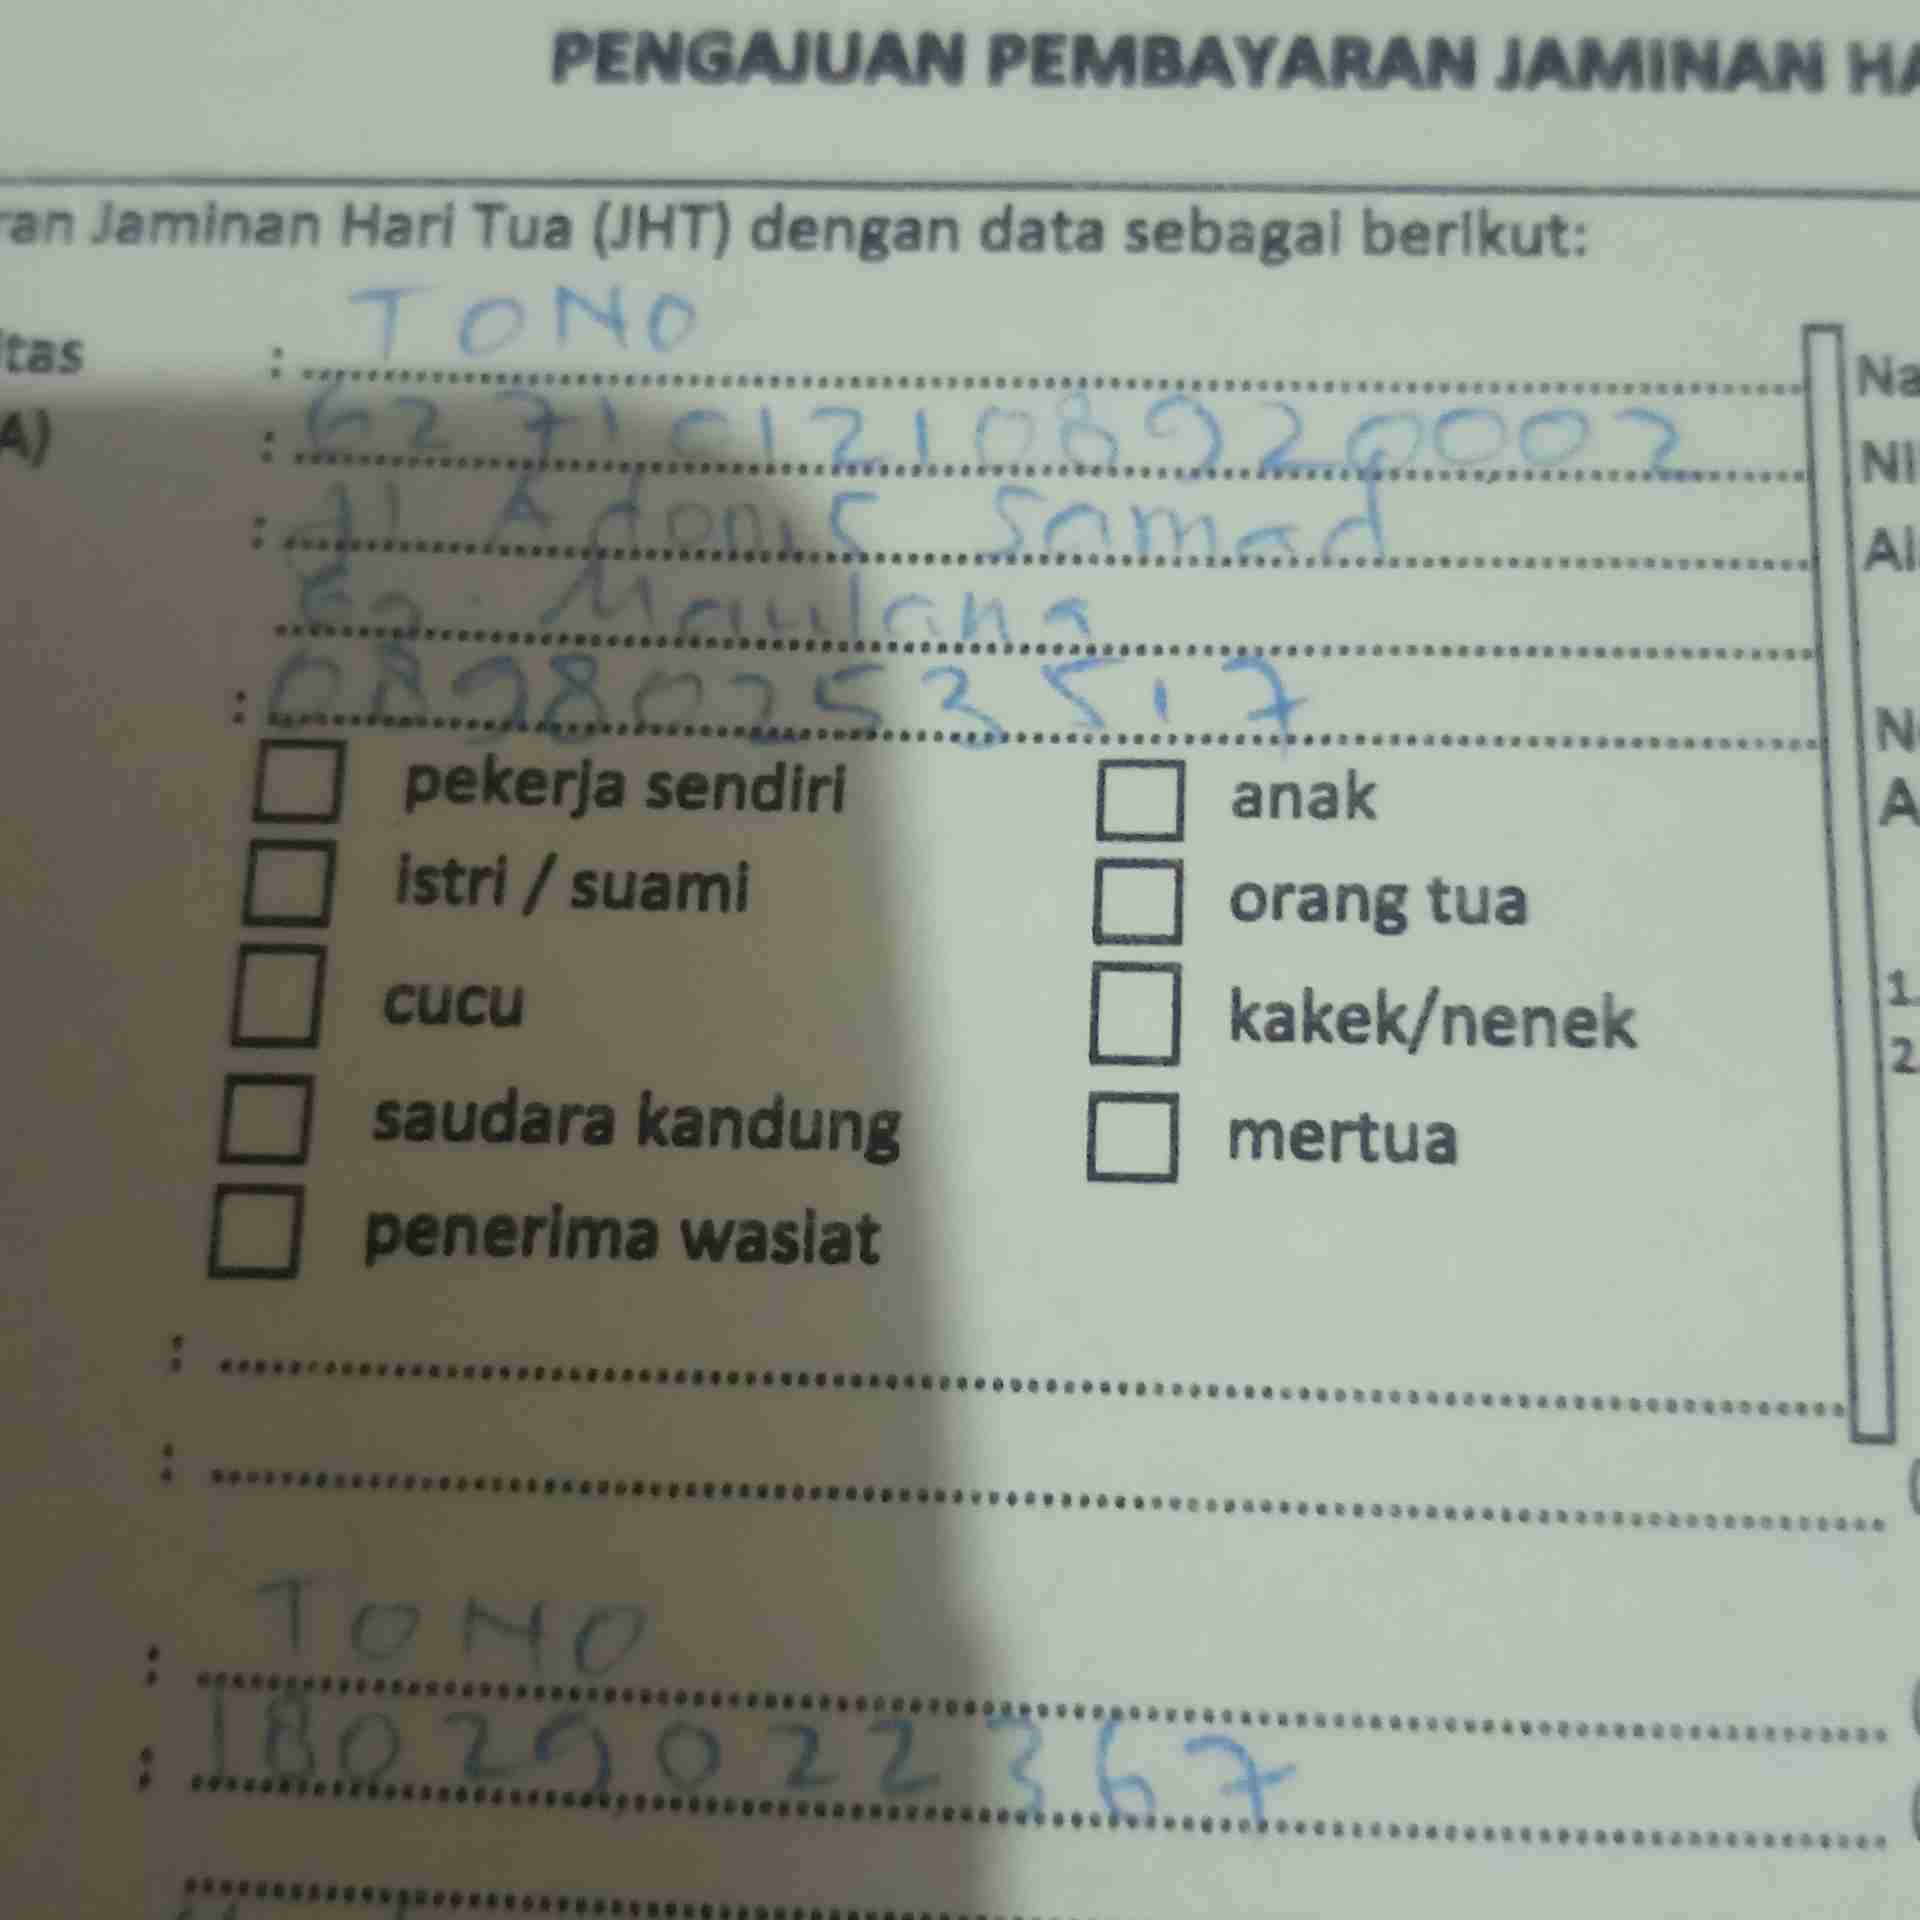 PENGAJUAN PEMBAYARAN JAMINAN HA
ran Jaminan Hari Tua (JHT) dengan data sebagai berikut:
itas : TONO Na
A) : 6271012108920002 NI
: Jl Adonis Samad Al
Gg. Maulana
: 08980253517 N
pekerja sendiri anak A
istri / suami orang tua
cucu kakek/nenek 1.
2
saudara kandung mertua
penerima wasiat
:
:
: TONO
: 18029022367